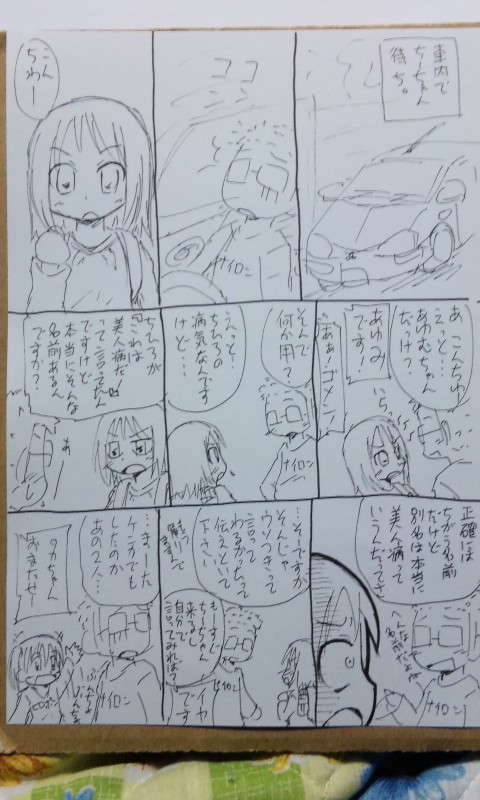 車内で
ちーちゃん
待ち。
ココ
ンン
ナイロン
こん
ちわー
あ、こんちゎ
えっと…
あゆむちゃん
だっけ?
あゆみ
です!
あぁ、ゴメン!
いち。
そんで
何か用?
えっと…
ちひろの
病気なんです
けど…
ナイロン
ちひろが
「これは
美人病だ!」
って言ってたん
ですけど
本当にそんな
名前あるん
ですか?
あ
正確は
ちがう名前
だけど
別名は本当に
美人病って
いうんだってさ
へんな
名前だよな
ナイロン
…そーですか
そんじゃ
ウソつきって
言って
わるかったって
伝えといて
下さい
もーすぐ
ちーちゃん
来るし
自分で
言ってみれば?
イヤ
です
ナイロン
…まーた
ケンカでも
したのか
あの2人…
タカちゃん
おまたせー
ナイロン